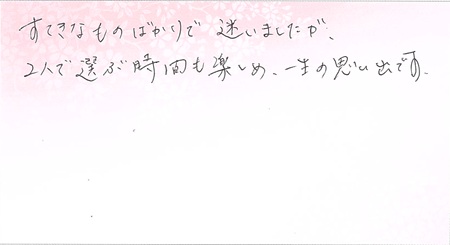 すてきなものばかりで迷いましたが、
2人で選ぶ時間も楽しめ、一生の思い出です。